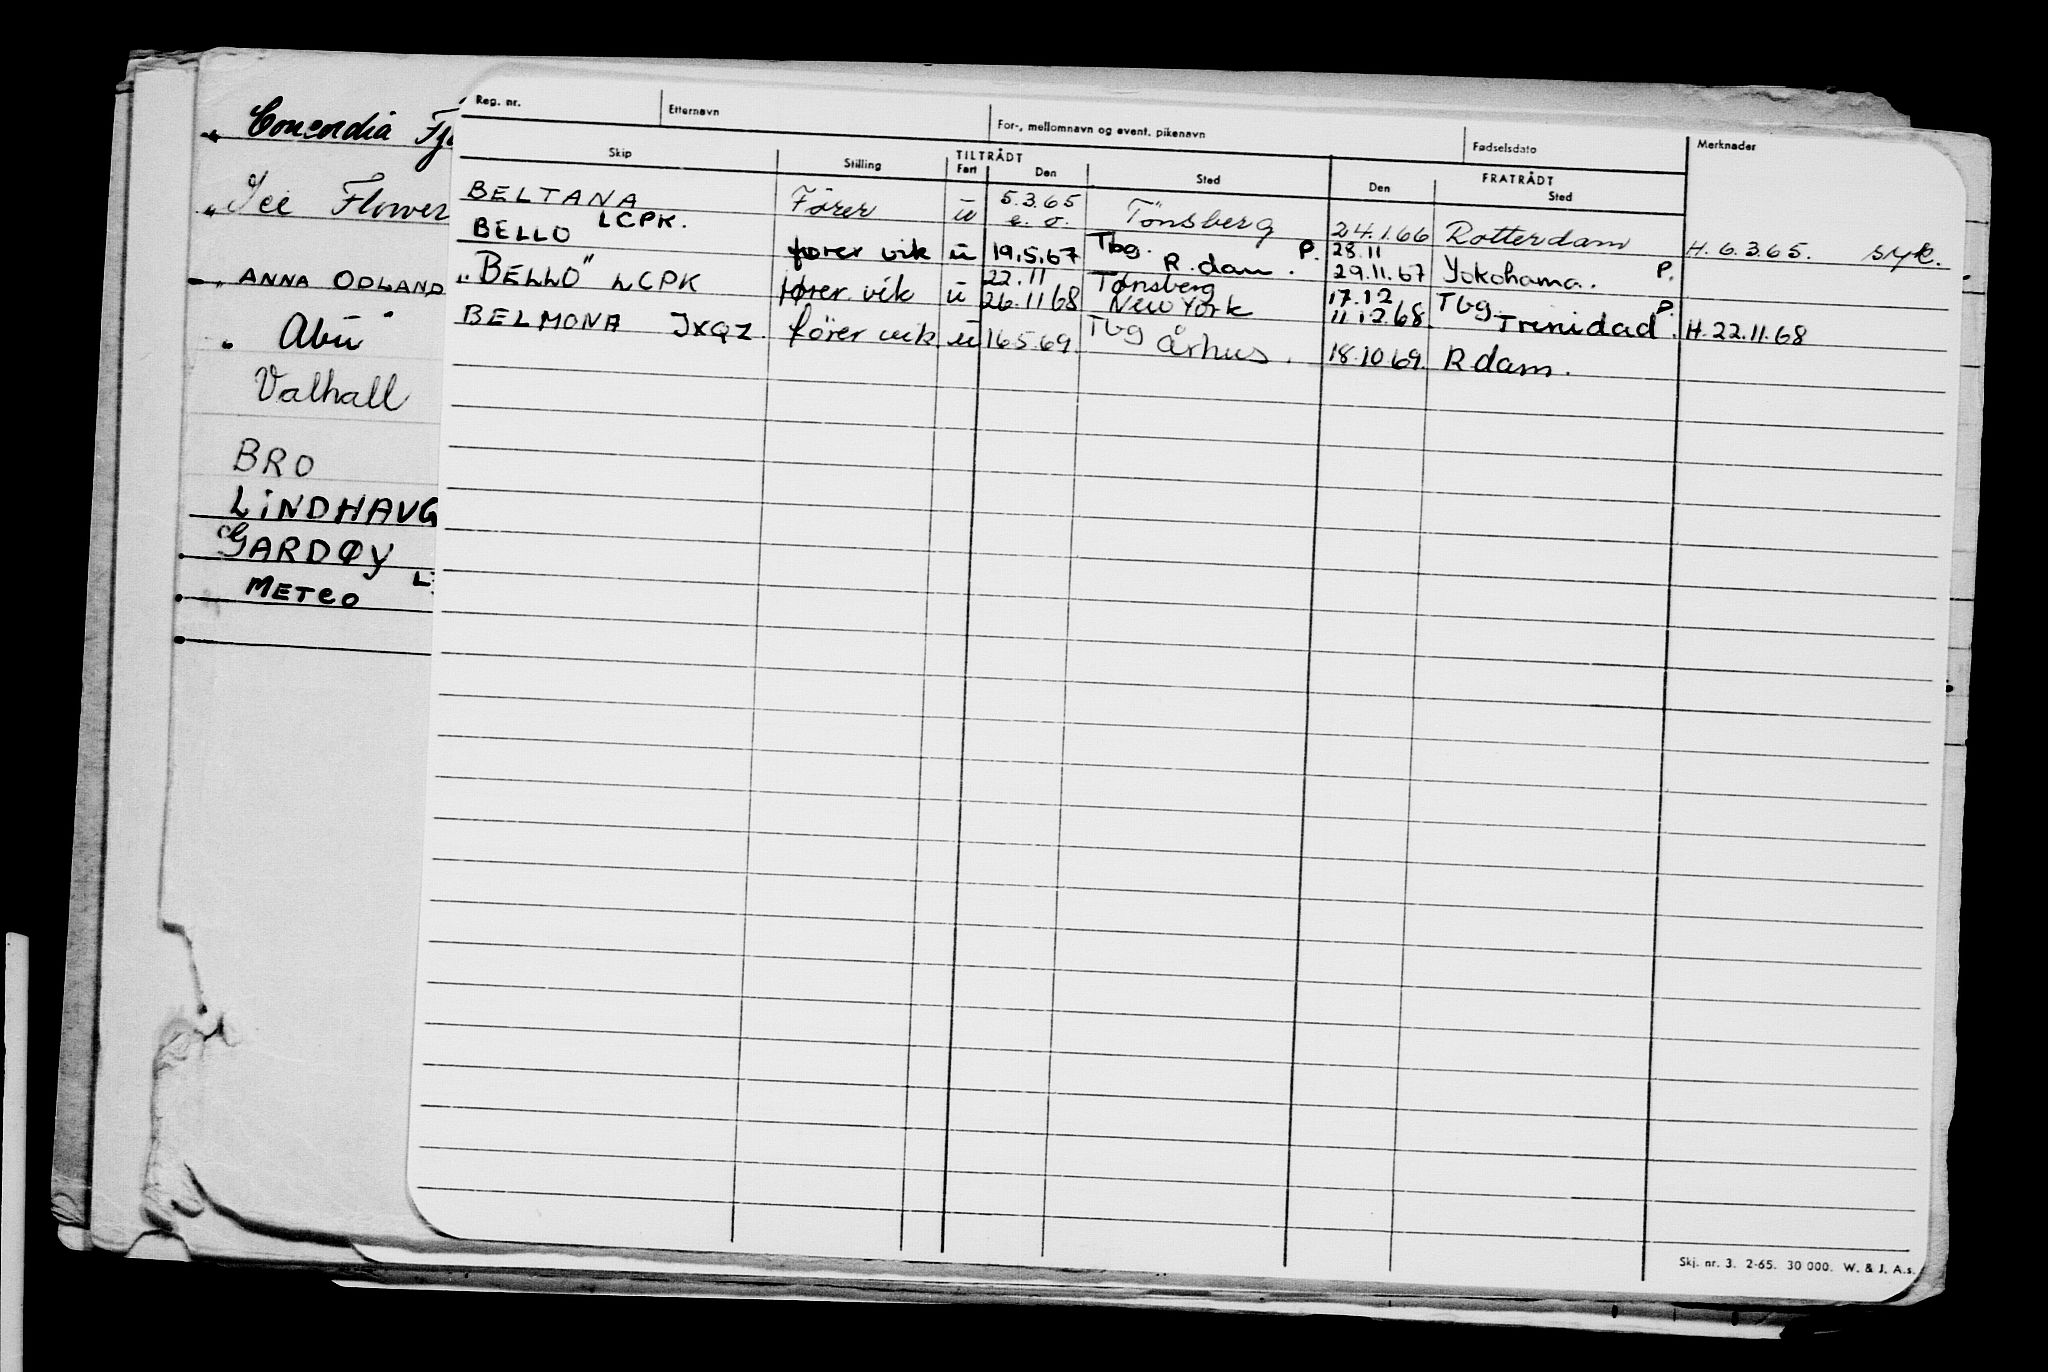 Concordia
Ice Flower
ANNA ODLAND
Abu
Valhall
BRO
LINDHAUG
GARDØY
METCO
Reg. nr. Etternavn For-, mellomnavn og event. pikenavn Fødselsdato Merknader
Skip Stilling TILTRÅDT FRATRÅDT
Fart Den Sted Den Sted
BELTANA Förer ü 5.3.65 e. o. Tönsberg 24.1.66 Rotterdam H. 6.3.65. syk.
BELLO LCPK. fører vik ü 19.5.67 Tbg. R.dam. P. 28.11 29.11.67 Yokohama. P.
"BELLO" LCPK fører vik ü 22.11 26.11 68 Tønsberg New York 17.12 11.12.68 Tbg Trinidad. P. H. 22.11.68
BELMONA JXQZ. förer vik ü 16.5.69. Tbg Århus. 18.10.69. R dam.
Skj. nr. 3. 2-65. 30 000. W. & J. A.s.